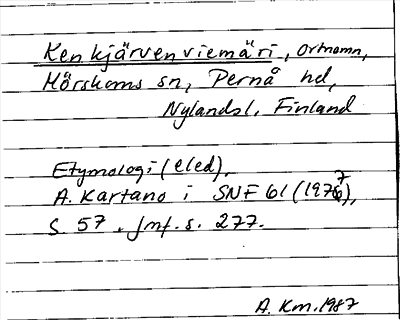 Kenkjärvenviemäri, Ortnamn,
Mörskoms sn, Pernå hd,
Nylandsl. Finland
Etymologi (eled).
A. Kartano i SNF 61 (1977),
S. 57. Jmf. s. 277.
A. Km. 1987